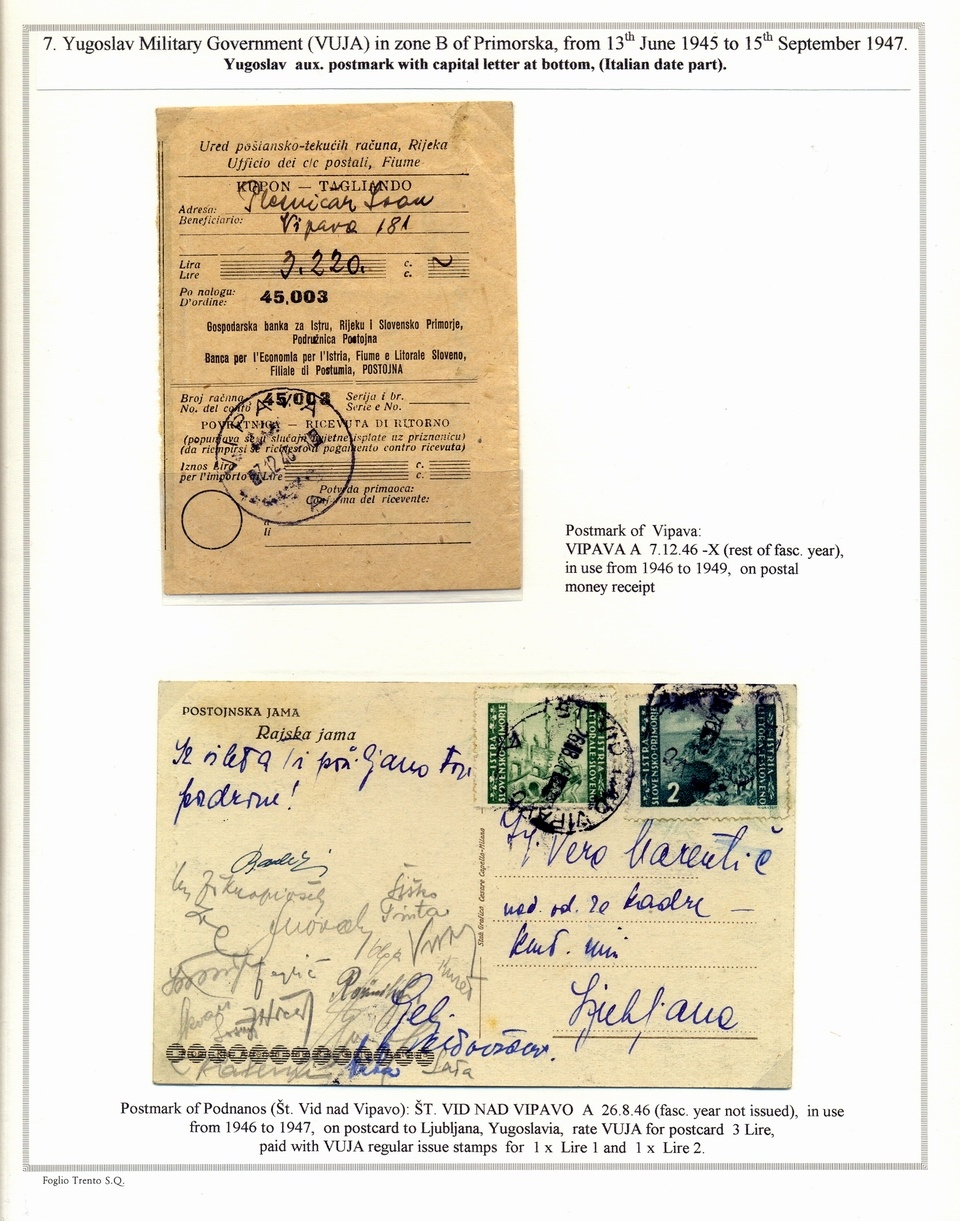 7. Yugoslav Military Government (VUJA) in zone B of Primorska, from 13th June 1945 to 15th September 1947.
Yugoslav aux. postmark with capital letter at bottom, (Italian date part).
Ured pošiansko-tekućih računa, Rijeka
Ufficio dei c/c postali, Fiume
KUPON — TAGLIANDO
Adresa:
Beneficiario:
Plesničar Ivan
Vipava 181
Lira
Lire
3.220.
c.
c.
Po nalogu:
D'ordine:
45.003
Gospodarska banka za Istru, Rijeku i Slovensko Primorje,
Podružnica Postojna
Banca per l'Economia per l'Istria, Fiume e Litorale Sloveno,
Filiale di Postumia, POSTOJNA
Broj računa
No. del conto
45/003
Serija i br.
Serie e No.
POVRATNICA — RICEVUTA DI RITORNO
(popunjava se u slučaju uvjetne isplate uz priznanicu)
(da riempirsi se richiesto il pagamento contro ricevuta)
Iznos Lira
per l'importo di Lire
c.
c.
Potvrda primaoca:
Conferma del ricevente:
li
VIPAVA
7.12.46
A
Postmark of Vipava:
VIPAVA A 7.12.46 -X (rest of fasc. year),
in use from 1946 to 1949, on postal
money receipt
POSTOJNSKA JAMA
Rajska jama
pozdrave!
ISTRA
SLOVENSKO PRIMORJE
ISTRIA
LITTORALE SLOVENO
ISTRA
SLOVENSKO PRIMORJE
2
ISTRIA
LITTORALE SLOVENO
ŠT. VID NAD VIPAVO
Stab. Grafico Cesare Capello-Milano
Vera
za kadre —
Ljubljana
Šiško
Olga
Novak
Postmark of Podnanos (Št. Vid nad Vipavo): ŠT. VID NAD VIPAVO A 26.8.46 (fasc. year not issued), in use
from 1946 to 1947, on postcard to Ljubljana, Yugoslavia, rate VUJA for postcard 3 Lire,
paid with VUJA regular issue stamps for 1 x Lire 1 and 1 x Lire 2.
Foglio Trento S.Q.